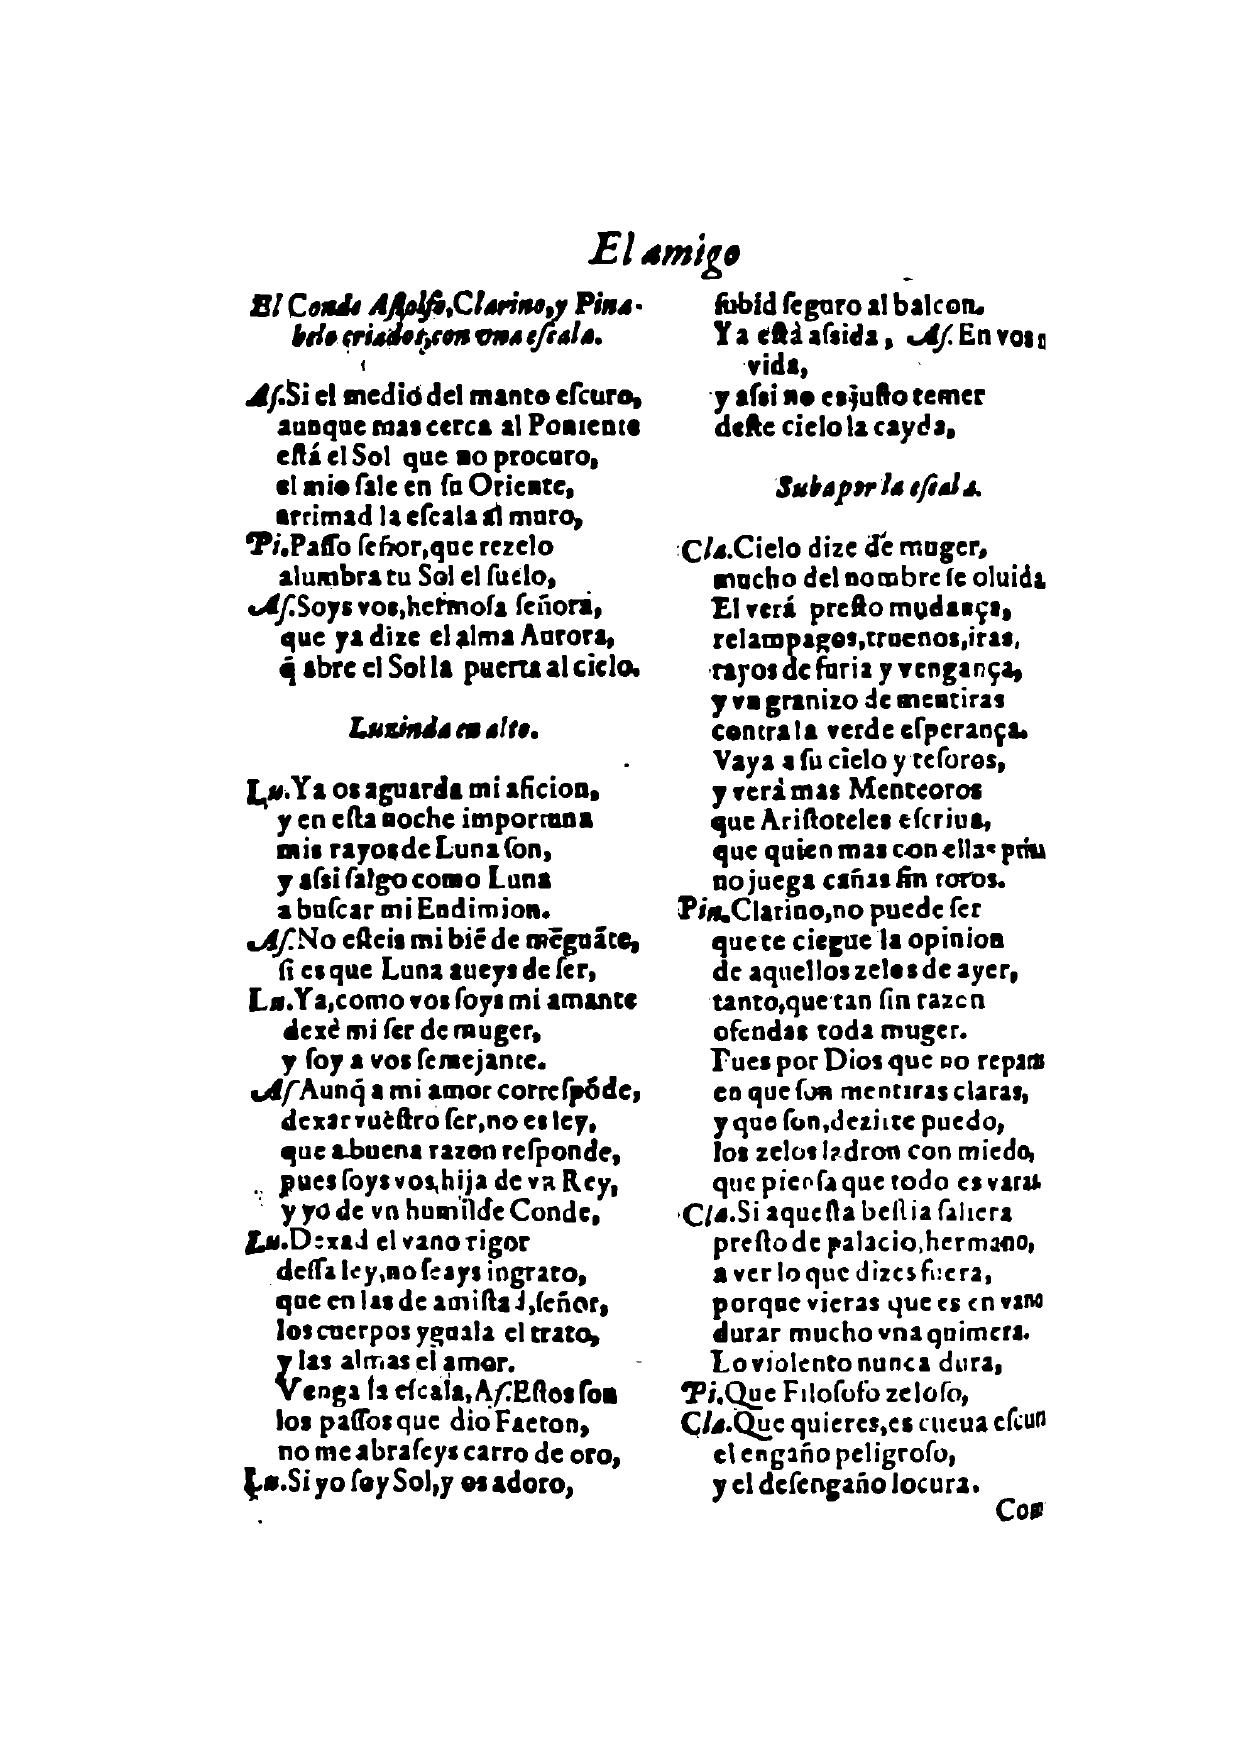 El amigo
El Conde Astolfo, Clarino, y Pina-
belo criados, con vna escala.
As. Si el medio del manto escuro,
aunque mas cerca al Poniente
está el Sol que no procuro,
el mio sale en su Oriente,
arrimad la escala al muro,
Pi. Passo señor, que rezelo
alumbra tu Sol el suelo,
As. Soys vos, hermosa señora,
que ya dize el alma Aurora,
q̃ abre el Sol la puerta al cielo.
Luzinda en alto.
Lu. Ya os aguarda mi aficion,
y en esta noche importuna
mis rayos de Luna son,
y assi salgo como Luna
a buscar mi Endimion.
As. No esteis mi biẽ de mẽguãte,
si es que Luna aueys de ser,
Lu. Ya, como vos soys mi amante
dexè mi ser de muger,
y soy a vos semejante.
As Aunq̃ a mi amor correspõde,
dexar vuestro ser, no es ley,
que a buena razon responde,
pues soys vos, hija de vn Rey,
y yo de vn humilde Conde,
Lu. Dexad el vano rigor
dessa ley, no seays ingrato,
que en las de amistad, señor,
los cuerpos yguala el trato,
y las almas el amor.
Venga la escala, As. Estos son
los passos que dio Faeton,
no me abraseys carro de oro,
Lu. Si yo soy Sol, y os adoro,
subid seguro al balcon.
Ya está assida, As. En vos
vida,
y assi no es justo temer
deste cielo la cayda,
Suba por la escala.
Cla. Cielo dize de muger,
mucho del nombre se oluida
El verá presto mudança,
relampagos, truenos, iras,
rayos de furia y vengança,
y vn granizo de mentiras
contra la verde esperança.
Vaya a su cielo y tesoros,
y verá mas Menteoros
que Aristoteles escriua,
que quien mas con ellas priu
no juega cañas sin toros.
Pin. Clarino, no puede ser
que te ciegue la opinion
de aquellos zelos de ayer,
tanto, que tan sin razon
ofendas toda muger.
Pues por Dios que no reparas
en que son mentiras claras,
y que son, dezirte puedo,
los zelos ladron con miedo,
que piensa que todo es varas
Cla. Si aquesta bestia saliera
presto de palacio, hermano,
a ver lo que dizes fuera,
porque vieras que es en vano
durar mucho vna quimera.
Lo violento nunca dura,
Pi. Que Filosofo zeloso,
Cla. Que quieres, es cueua escun
el engaño peligroso,
y el desengaño locura.
Con